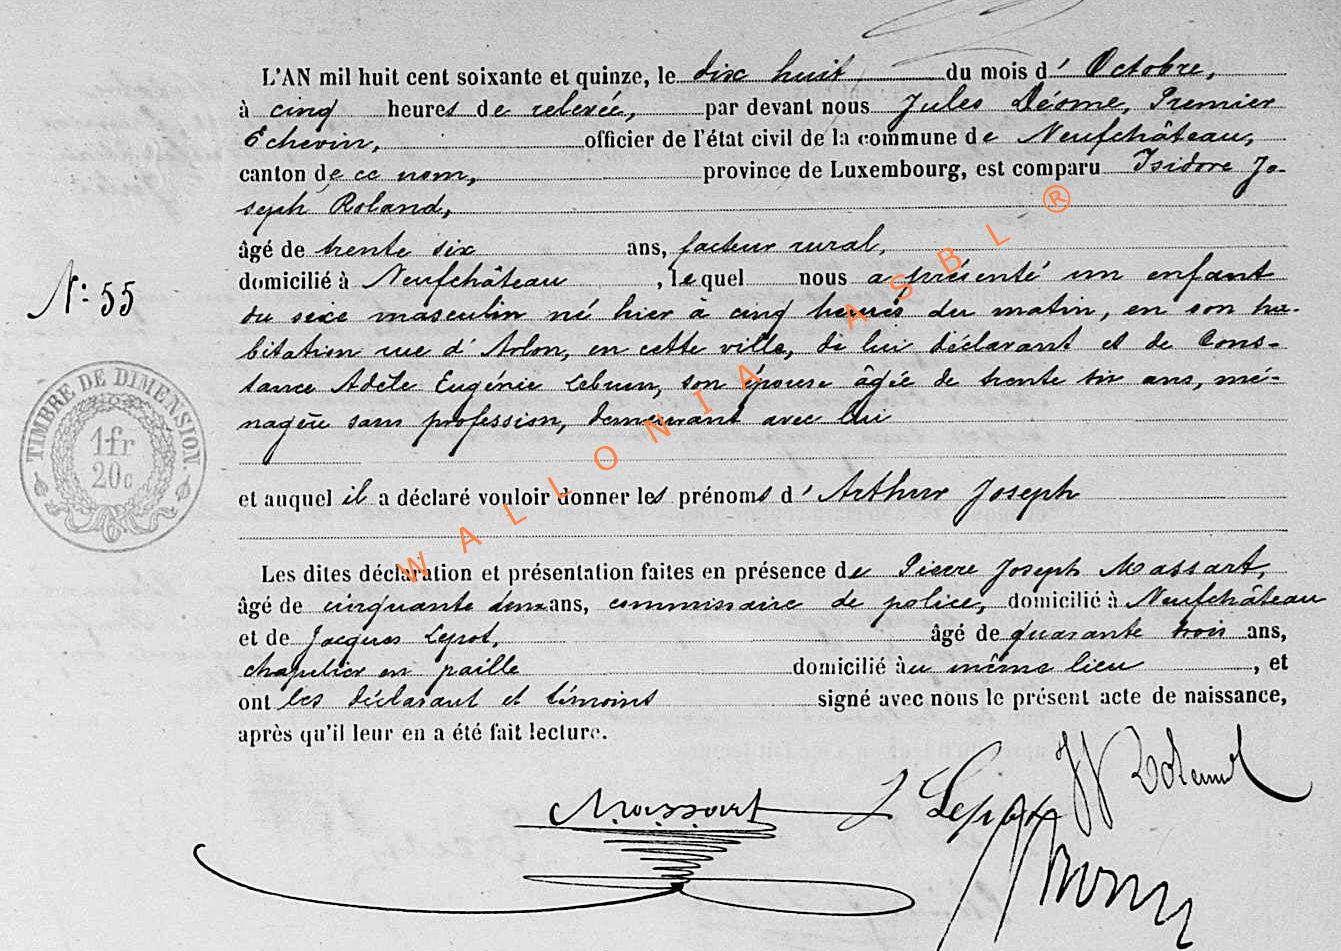 L'AN mil huit cent soixante et quinze, le dix huit du mois d' Octobre,
à cinq heures de relevée, par devant nous Jules Déome, Premier
Echevin, officier de l'état civil de la commune de Neufchâteau,
canton de ce nom, province de Luxembourg, est comparu Isidore Jo-
seph Roland,
âgé de trente six ans, facteur rural,
domicilié à Neufchâteau, lequel nous a présenté un enfant
N° 55
du sexe masculin né hier à cinq heures du matin, en son ha-
bitation rue d'Arlon, en cette ville, de lui déclarant et de Cons-
tance Adèle Eugénie Lebrun, son épouse âgée de trente six ans, mé-
nagère sans profession, demeurant avec lui
TIMBRE DE DIMENSION.
1fr
20c
et auquel il a déclaré vouloir donner les prénoms d' Arthur Joseph
Les dites déclaration et présentation faites en présence de Pierre Joseph Massart,
âgé de cinquante deux ans, commissaire de police, domicilié à Neufchâteau
et de Jacques Lepot, âgé de quarante trois ans,
chapelier en paille domicilié au même lieu, et
ont les déclarant et témoins signé avec nous le présent acte de naissance,
après qu'il leur en a été fait lecture.
Massart J Lepot JJ Roland
WALLONIA ASBL ®